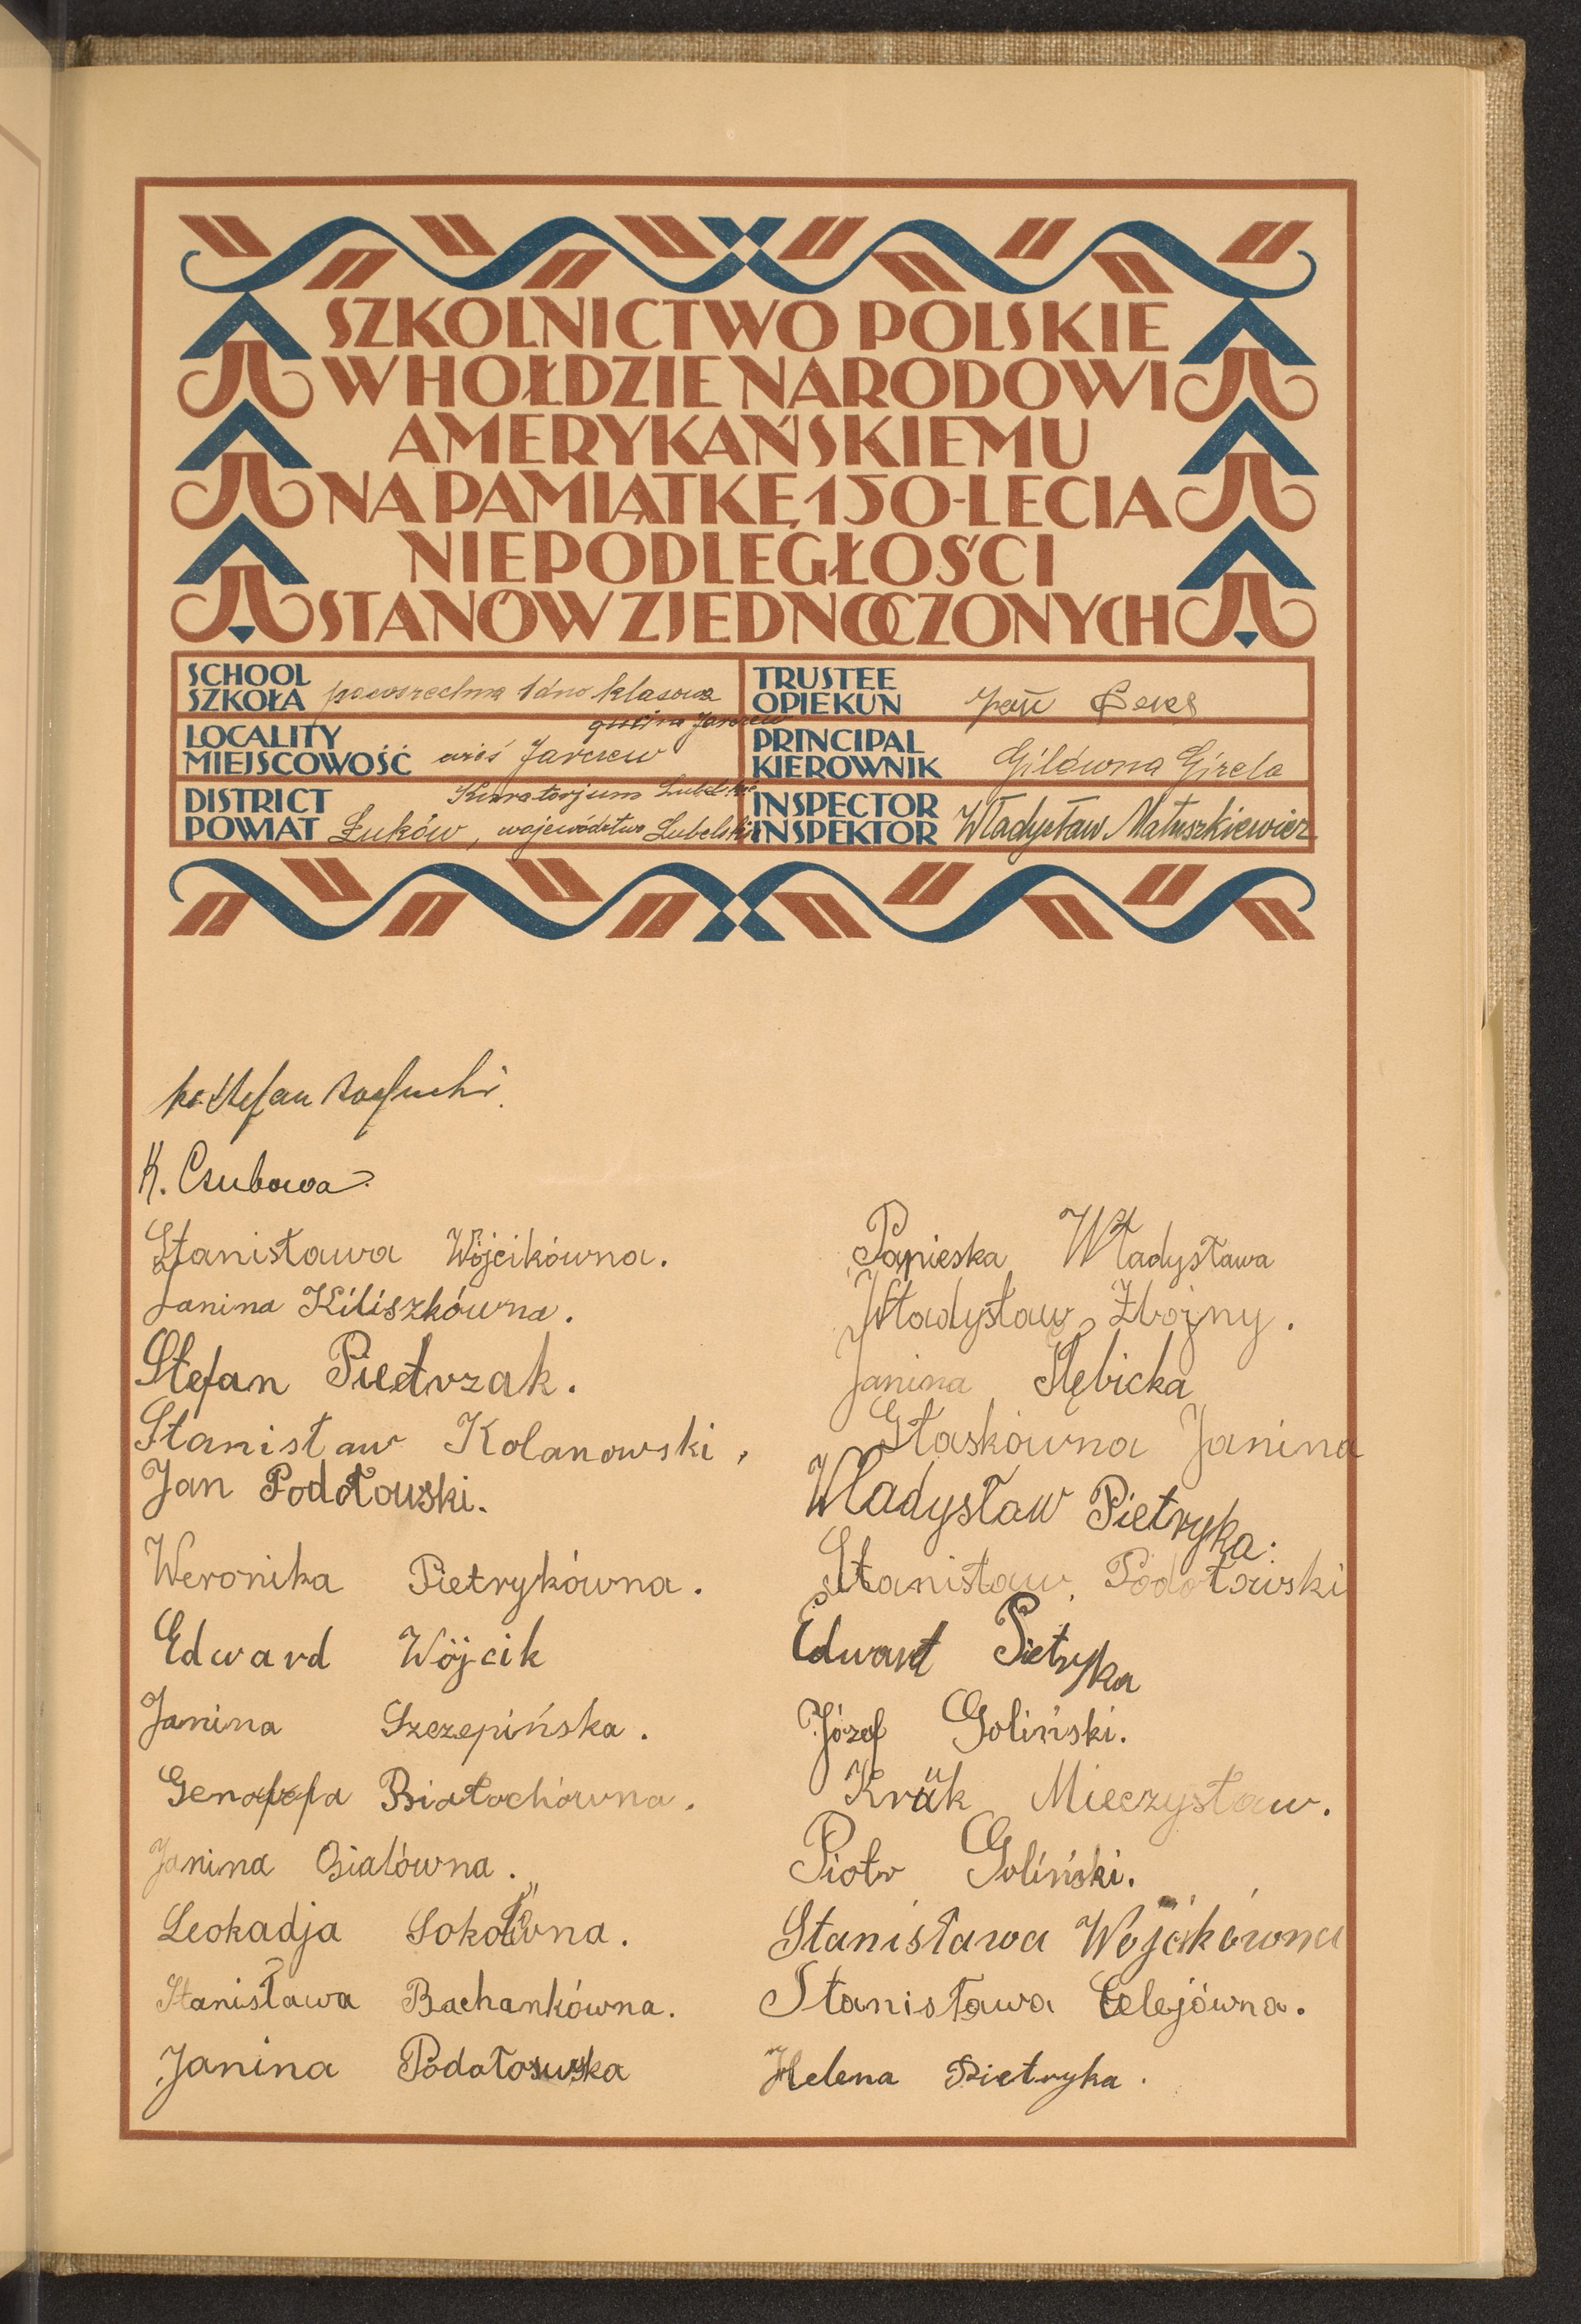 SZKOLNICTWO POLSKIE
W HOŁDZIE NARODOWI
AMERYKAŃSKIEMU
NA PAMIĄTKĘ 150-LECIA
NIEPODLEGŁOŚCI
STANÓW ZJEDNOCZONYCH
SCHOOL
SZKOŁA powszechna 1dno klasowa
gmina Jarczew
LOCALITY
MIEJSCOWOŚĆ wieś Jarczew
Kuratorjum Lubelskie
DISTRICT
POWIAT Łuków, województwo Lubelskie
TRUSTEE
OPIEKUN Jan
PRINCIPAL
KIEROWNIK Gilówna Gizela
INSPECTOR
INSPEKTOR Władysław Matuszkiewicz
ks. Stefan
K. Czubowa
Stanisława Wójcikówna.
Janina Kiliszkówna.
Stefan Pietrzak.
Stanisław Kolanowski,
Jan Podołowski.
Weronika Pietrykówna.
Edward Wójcik
Janina Szczepińska.
Genofefa Białochówna.
Janina Osialówna.
Leokadja Sokołówna.
Stanisława Bachankówna.
Janina Podołowska
Papieska Władysława
Władysław Zbojny.
Janina Kłębicka
Głaskówna Janina
Władysław Pietryka.
Stanisław Podołowski
Edwart Pietryka
Józef Goliński.
Kruk Mieczysław.
Piotr Goliński.
Stanisława Wójcikówna
Stanisława Celejówna.
Helena Pietryka.